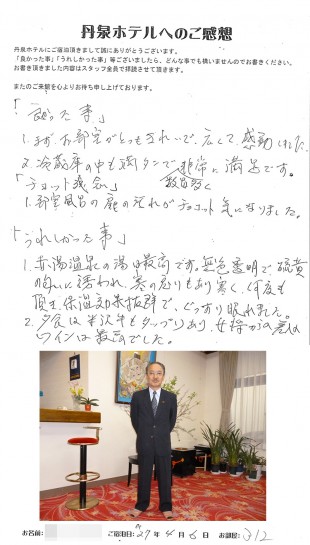 丹泉ホテルへのご感想
丹泉ホテルにご宿泊頂きまして誠にありがとうございます。
「良かった事」「うれしかった事」等ございましたら、どんな事でも構いませんのでお書きください。
お書き頂きました内容はスタッフ全員で拝読させて頂きます。
またのご来館を心よりお待ち申し上げております。
「良かった事」
1. まず、お部屋がとてもきれいで、広くて、感動しました。
2. 冷蔵庫の中も満タンで非常に満足です。
「チョット残念」
1. 部屋風呂の扉の汚れがチョット気になりました。
「うれしかった事」
1. 赤湯温泉の湯は最高です。無色透明で、硫黄
の匂いに誘われ、 何度も
頂き、保温効果抜群で、ぐっすり眠れました。
2. 夕食は米沢牛もタップリあり、女将からの
ワインは最高でした。
お名前:
ご宿泊日: 27年4月6日
お部屋: 312